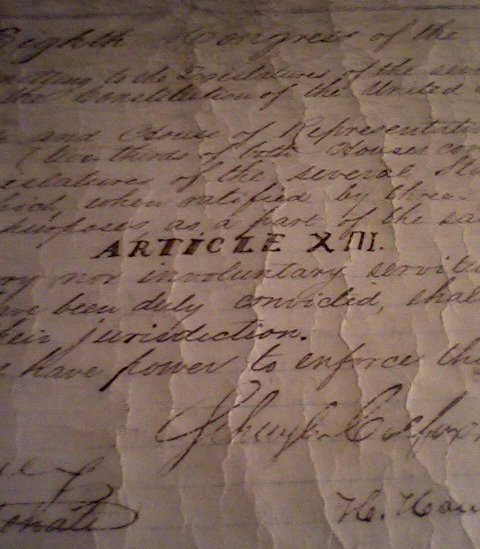 Eighth Congress of the
to the Legislatures of the
the Constitution of the United
and House of Representati
(two thirds of both Houses con
islatures of the several Sta
hich, when ratified by three-
purposes as a part of the sa
ARTICLE XIII.
ry nor involuntary servitu
ave been duly convicted, shal
heir jurisdiction.
have power to enforce thi
Schuyler Colfax
H. Ham
enate